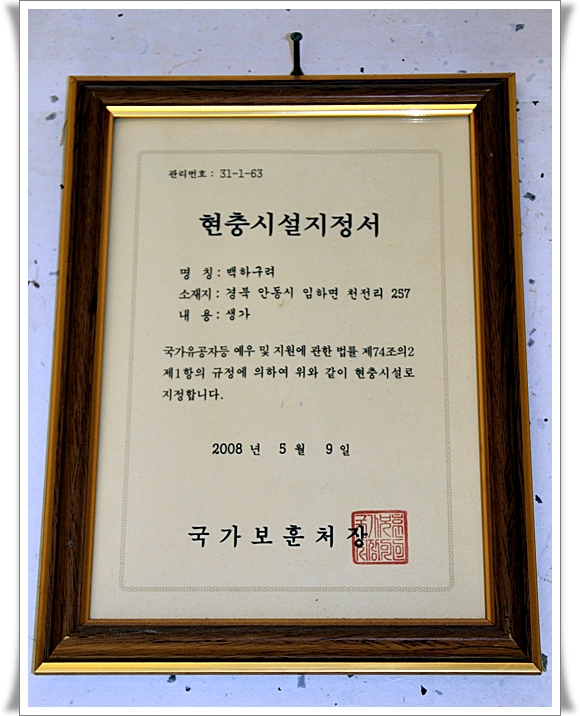 관리번호 : 31-1-63
현충시설지정서
명 칭 : 백하구려
소재지 : 경북 안동시 임하면 천전리 257
내 용 : 생가
국가유공자등 예우 및 지원에 관한 법률 제74조의2
제1항의 규정에 의하여 위와 같이 현충시설로
지정합니다.
2008 년 5 월 9 일
국가보훈처장